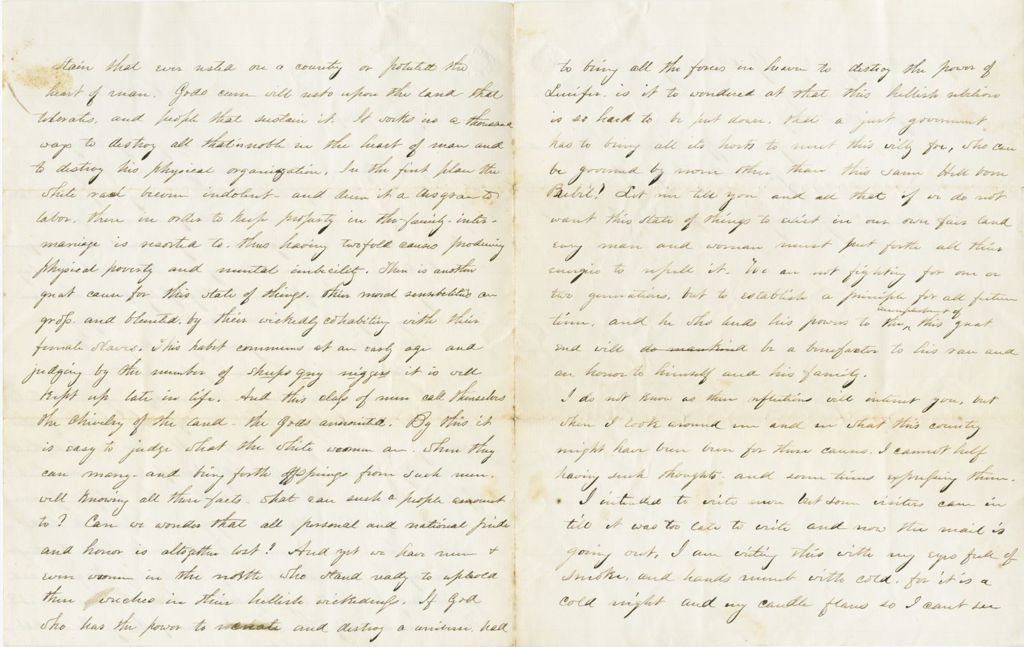 stain that ever rested on a country or poluted the
heart of man. Gods curse will rest upon the land that
tolerates, and people that sustain it. It works in a thousand
ways to destroy all that is noble in the heart of man and
to destroy his physical organization. In the first place the
white race become indolent and deem it a disgrace to
labor. then in order to keep property in the family inter-
marriage is resorted to. thus having twofold causes producing
physical poverty and mental imbecility. Then is another
great cause for this state of things. their moral sensibilities are
gross. and blunted. by their wickedly cohabiting with their
female slaves. This habit commens at an early age and
judging by the number of sheeps gray niggers it is well
kept up late in life. And this class of men call themselves
the chivalry of the land - the Gods annointed. By this it
is easy to judge what the white women are. when they
can marry and bring forth offsprings from such men.
well knowing all these facts. what can such a people amount
to? Can we wonder that all personal and national pride
and honor is altogether lost! And yet we have men &
even women in the north who stand ready to uphold
these wreches in their hellish wickedness. If God
who has the power to and destroy a universe, had
to bring all the forces in heaven to destroy the power of
Lucifer. is it to wondered at that this hellish rebelion
is so hard to be put down. that a just goverment
has to bring all its hosts to meet this wily foe, who can
be governed by none other than this same Hell born
Let me tell you and all that if we do not
want this state of things to exist in our own fair land
every man and woman must put forth all their
energies to repell it. We are not fighting for one or
two generations, but to establish a principle for all future
time, and he who lends his powers to the accomplishment of this great
end will do mankind be a benefactor to his race and
an honor to himself and his family.
I do not know as these reflections will interest you, but
when I look around me and see what this country
might have been but for these causes. I cannot help
having such thoughts. and some times expressing them.
I intended to write more but some visitors came in
till it was too late to write and now the mail is
going out. I am writing this with my eyes full of
smoke, and hands numb with cold. for it is a
cold night and my candle flares so I cant see